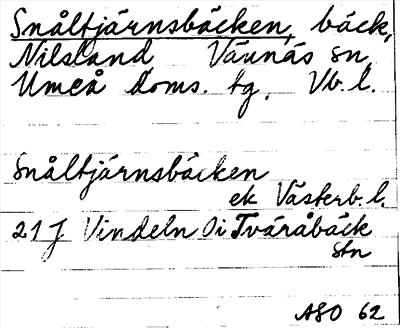 Snåltjärnsbäcken, bäck,
Nilsland Vännäs sn,
Umeå doms. tg, Vb. l.
Snåltjärnsbäcken
ek Västerb. l.
21 J Vindeln Oi Tväråbäck
stn
ASO 62